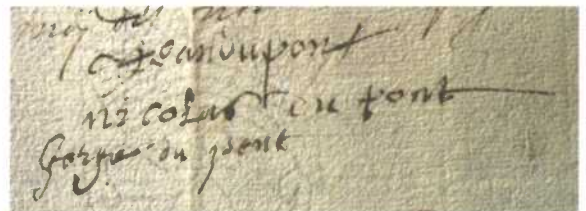 Jean dupont
nicolas du pont
George du pont